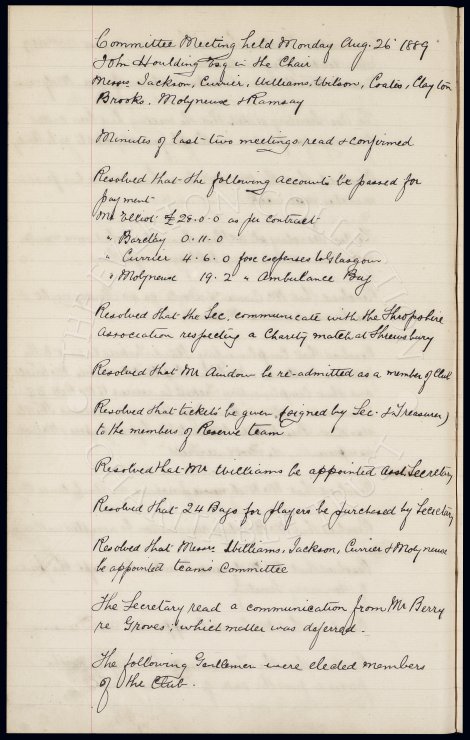 Committee Meeting held Monday Aug. 26 1889
John Houlding Esq in the Chair
Messrs Jackson, Currier, Williams, Wilson, Coates, Clayton
Brooks, Molyneux & Ramsay
Minutes of last two meetings read & confirmed
Resolved that the following accounts be passed for
payment
Mr Elliot £28.0.0 as per contract
" Barclay 0.11.0
" Currier 4.6.0 for expenses to Glasgow
" Molyneux 19.2 " Ambulance Bag
Resolved that the Sec. communicate with the Shropshire
Association respecting a Charity match at Shrewsbury
Resolved that Mr Aindow be re-admitted as a member of Club
Resolved that tickets be given (signed by Sec. & Treasurer)
to the members of Reserve team
Resolved that Mr Williams be appointed Asst Secretary
Resolved that 24 Bags for players be purchased by Secretary
Resolved that Messrs Williams, Jackson, Currier & Molyneux
be appointed teams Committee
The Secretary read a communication from Mr Berry
re Groves; which matter was deferred.
The following Gentlemen were elected members
of the Club.